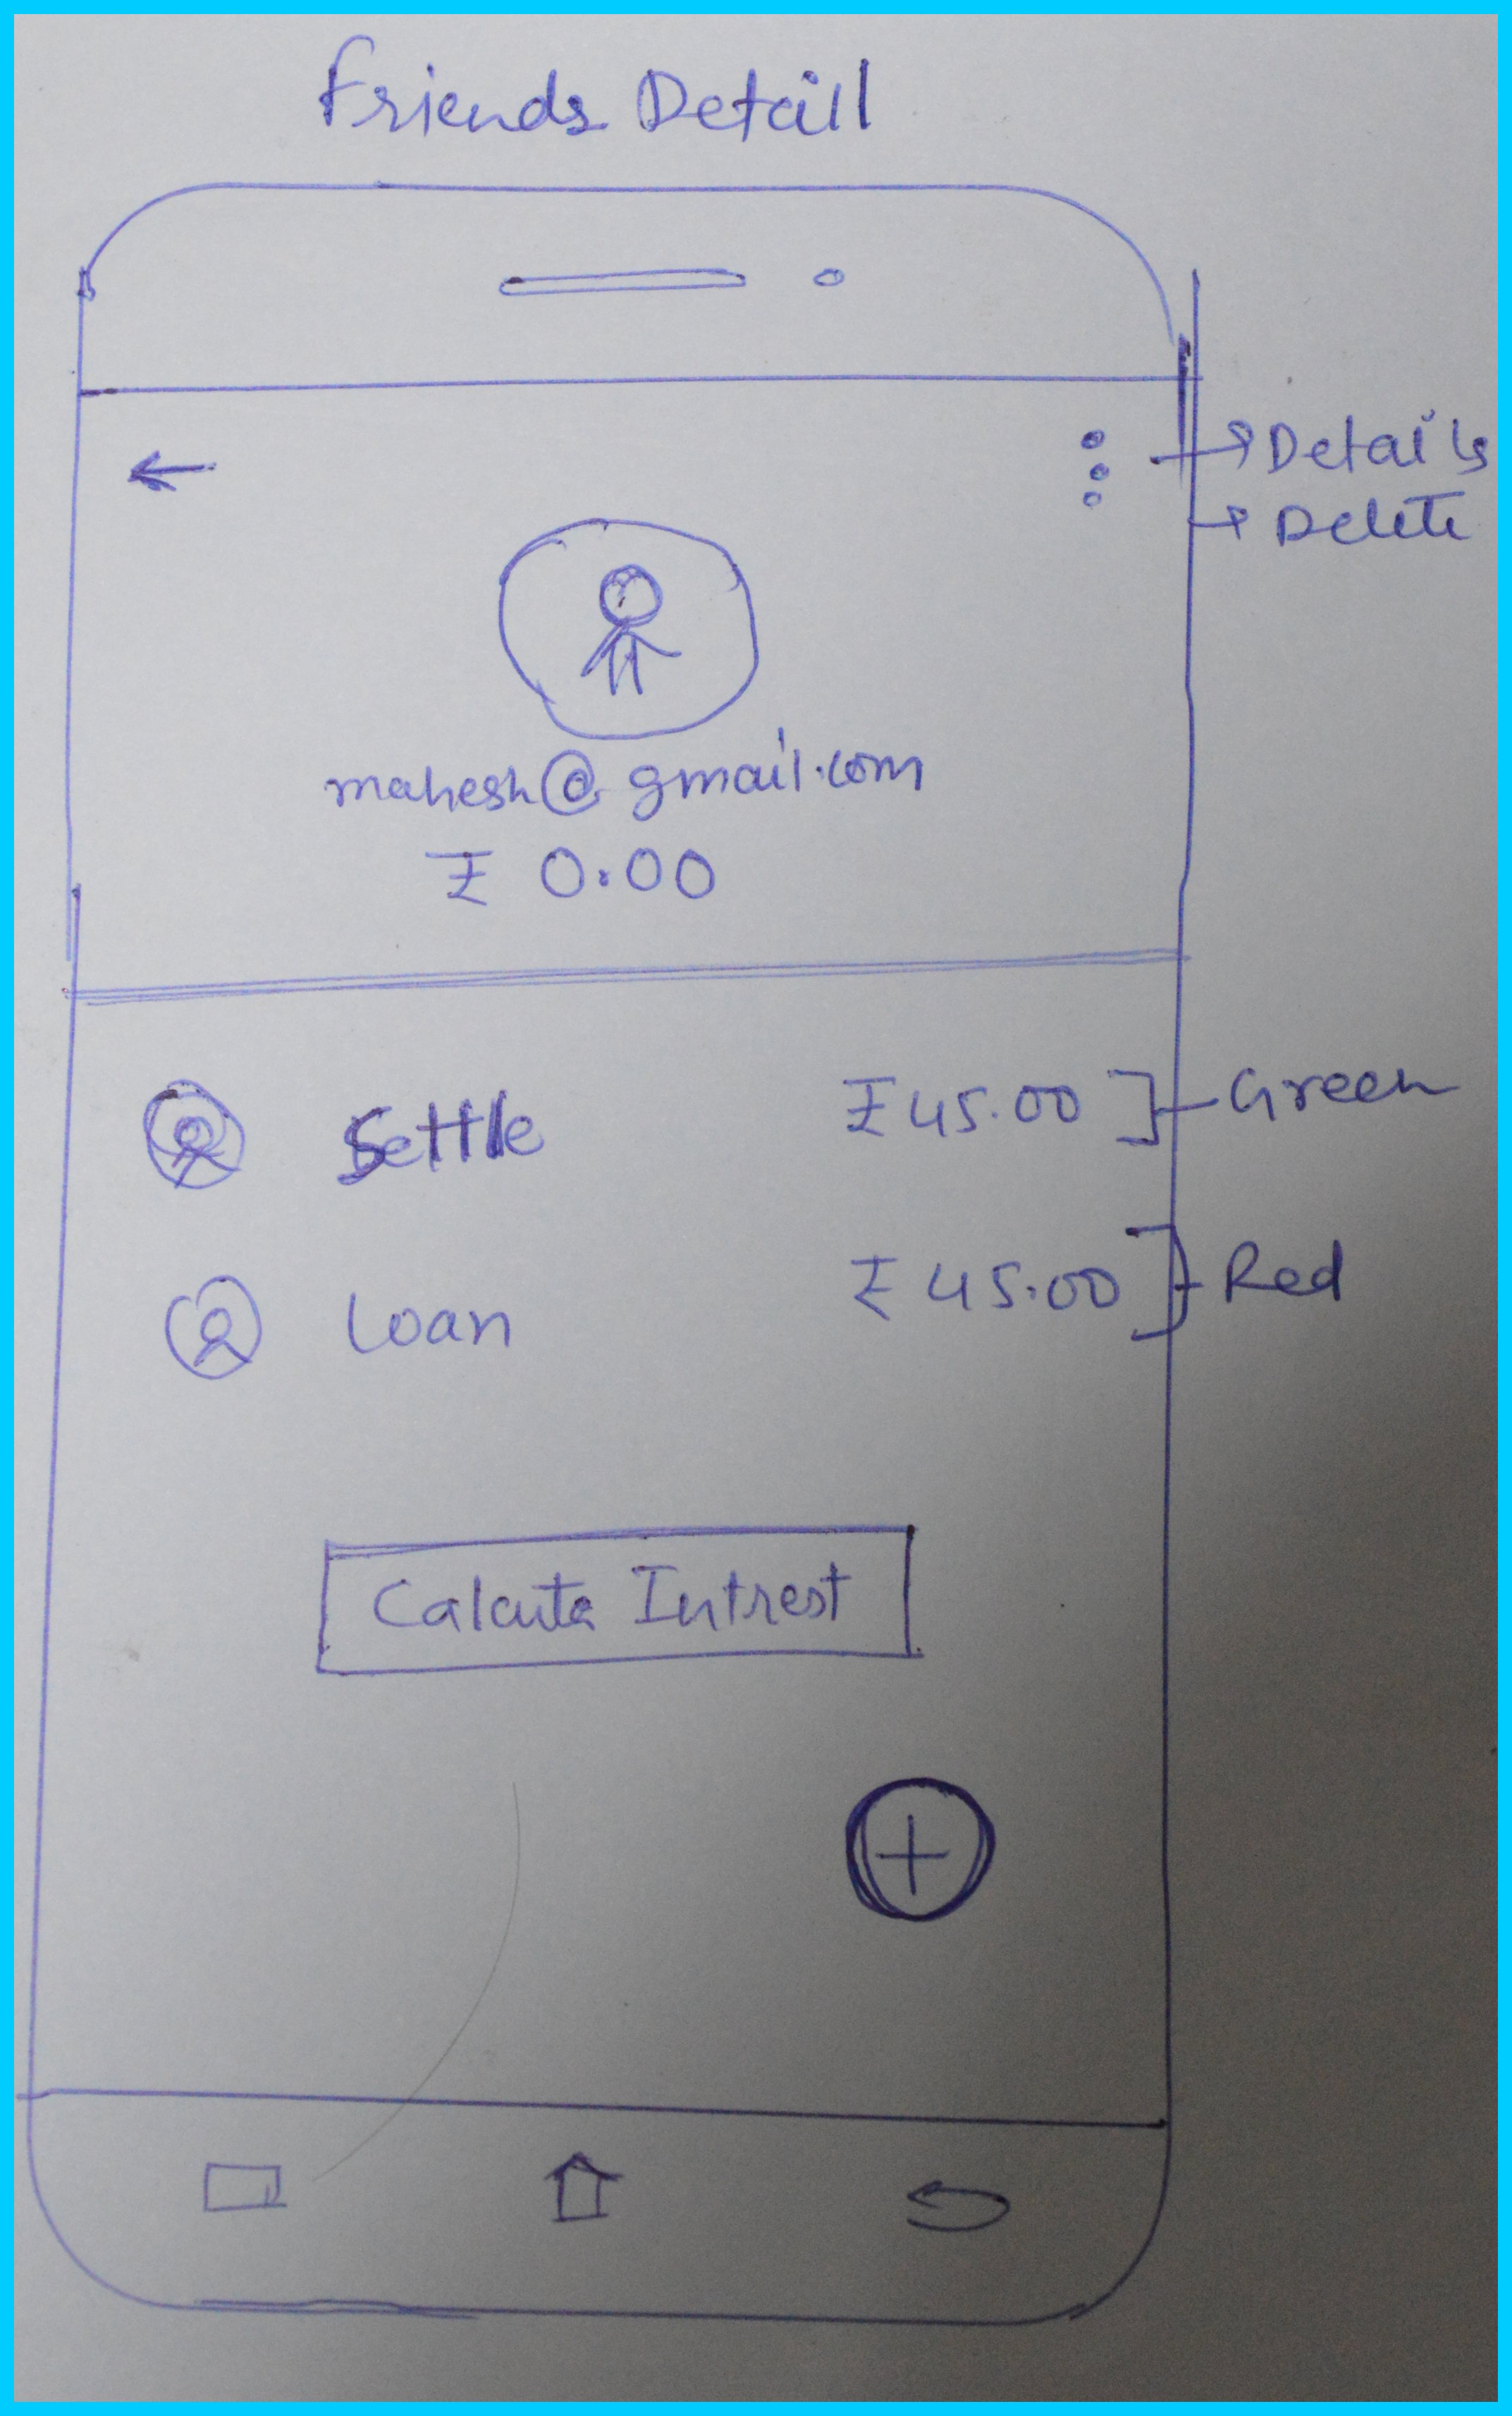 Friends Detail
Details
Delete
mahesh@gmail.com
₹ 0.00
Settle ₹45.00 Green
Loan ₹45.00 Red
Calcute Intrest
+